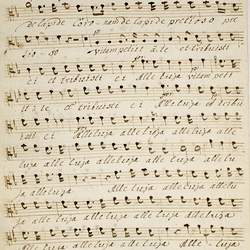 de lapide coro- nam de lapide pretioso pre
tio- so vitam petiit a te et tribuisti
ei et tribuisti ei alleluja vitam peti
it a te et tribuisti ei Alleluja et tribu
isti ei Alleluja alleluja alleluja alle
luja alleluja alleluja alleluja allelu
ja alleluja Alleluja alleluja allelu
ja alleluja alleluja alleluja alleluja
alleluja alleluja alle- luja